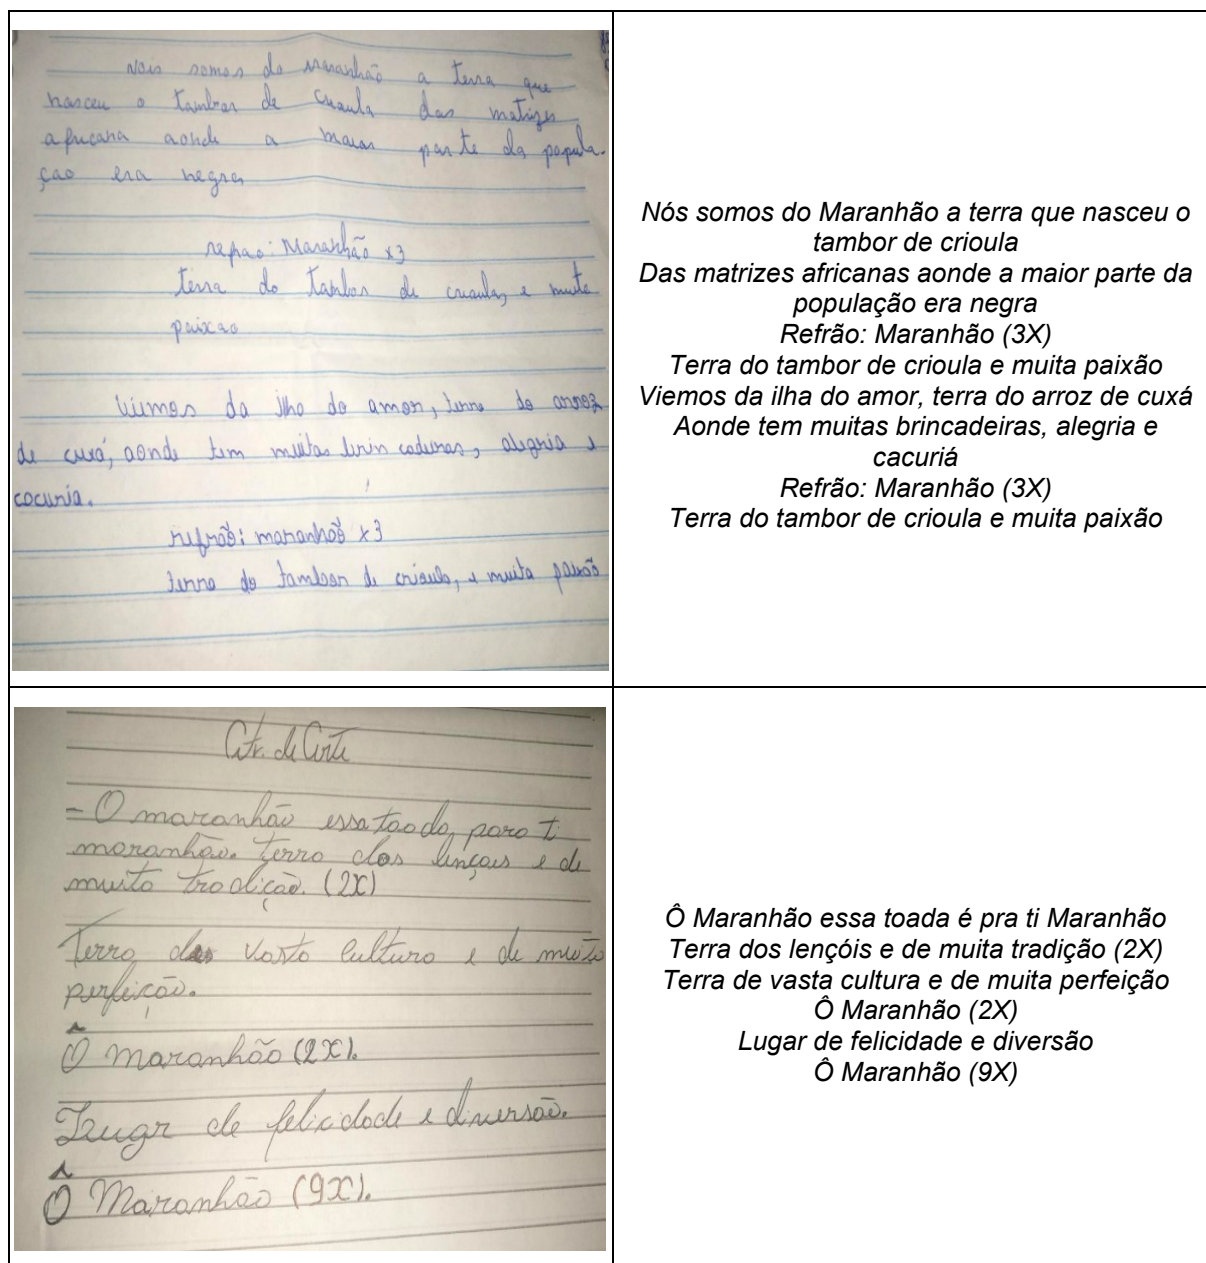 Nois somos do Maranhão a terra que
nasceu o tambor de criaula das matrizes
africana aonde a maior parte da popula-
ção era negra
refrao: Maranhão x3
terra do tambor de criaula, e muita
paixao
Viemos da ilha do amor, terra do arroz
de cuxá, aonde tem muitas brincadeiras, alegria e
cacuria.
refrão: maranhão x3
terra do tambor de crioula, e muita paixão
Nós somos do Maranhão a terra que nasceu o
tambor de crioula
Das matrizes africanas aonde a maior parte da
população era negra
Refrão: Maranhão (3X)
Terra do tambor de crioula e muita paixão
Viemos da ilha do amor, terra do arroz de cuxá
Aonde tem muitas brincadeiras, alegria e
cacuriá
Refrão: Maranhão (3X)
Terra do tambor de crioula e muita paixão
- O maranhão essa toada, para ti
maranhão. terra dos lençois e de
muita tradição. (2X)
Terra vasta cultura e de muita
perfeição.
Ô maranhão (2X).
Lugar de felicidade e diversão.
Ô Maranhão (9X).
Ô Maranhão essa toada é pra ti Maranhão
Terra dos lençóis e de muita tradição (2X)
Terra de vasta cultura e de muita perfeição
Ô Maranhão (2X)
Lugar de felicidade e diversão
Ô Maranhão (9X)